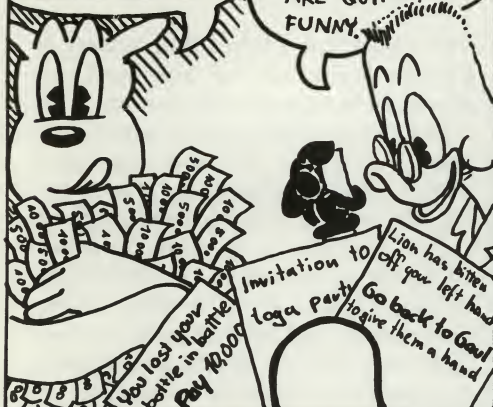 ARE
FUNNY.
You lost your
bottle in battle
Pay 10,000
Invitation to
toga party
Lion has bitten
off your left hand
Go back to Gaul
to give them a hand